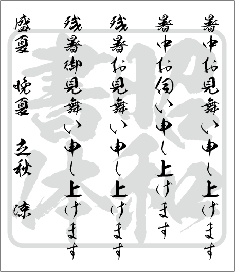 暑中お見舞い申し上げます
暑中お伺い申し上げます
残暑お見舞い申し上げます
残暑御見舞い申し上げます
盛夏 晩夏 立秋 涼
昭和
書体